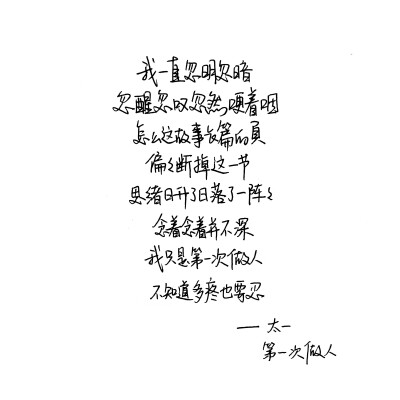 我一直忽明忽暗
忽醒忽叹忽然哽着咽
怎么这故事长篇的页
偏々断掉这一节
思绪日升了日落了一阵々
念着念着并不深
我只是第一次做人
不知道多疼也要忍
—— 太一
第一次做人